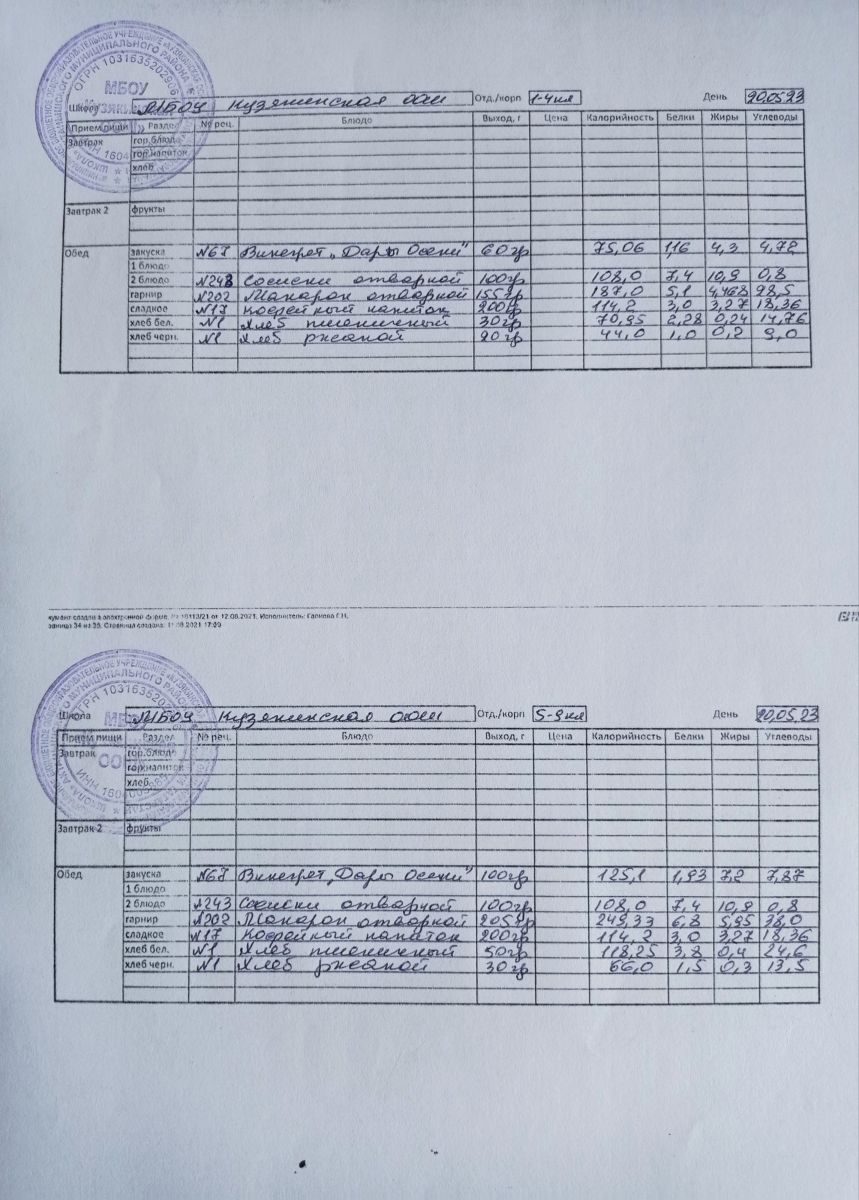 МБОУ
Школа МБОУ Кузякинская ООШ Отд./корп 1-4кл День 20.05.23
Прием пищи Раздел № рец. Блюдо Выход, г Цена Калорийность Белки Жиры Углеводы
Завтрак гор.блюдо
гор.напиток
хлеб
Завтрак 2 фрукты
Обед закуска №67 Винегрет "Дары Осени" 60гр 75,06 1,16 4,3 4,72
1 блюдо
2 блюдо №243 Сосиски отварной 100гр 108,0 7,4 10,9 0,8
гарнир №202 Макарон отварной 155гр 187,0 5,1 4,468 98,5
сладкое №17 Кофейный напиток 200гр 114,2 3,0 3,27 18,36
хлеб бел. №1 Хлеб пшеничный 30гр 70,95 2,28 0,24 14,76
хлеб черн. №1 Хлеб ржаной 20гр 44,0 1,0 0,2 9,0
кумент создан в электронной форме. № 18113/21 от 12.08.2021. Исполнитель:
аница 34 из 35. Страница создана: 11.08.2021 17:39
Школа МБОУ Кузякинская ООШ Отд./корп 5-9кл День 20.05.23
Прием пищи Раздел № рец. Блюдо Выход, г Цена Калорийность Белки Жиры Углеводы
Завтрак гор.блюдо
гор.напиток
хлеб
Завтрак 2 фрукты
Обед закуска №67 Винегрет "Дары Осени" 100гр 125,1 1,93 7,2 7,87
1 блюдо
2 блюдо №243 Сосиски отварной 100гр 108,0 7,4 10,9 0,8
гарнир №202 Макарон отварной 205гр 249,33 6,8 5,95 38,0
сладкое №17 Кофейный напиток 200гр 114,2 3,0 3,27 18,36
хлеб бел. №1 Хлеб пшеничный 50гр 118,25 3,8 0,4 24,6
хлеб черн. №1 Хлеб ржаной 30гр 66,0 1,5 0,3 13,5